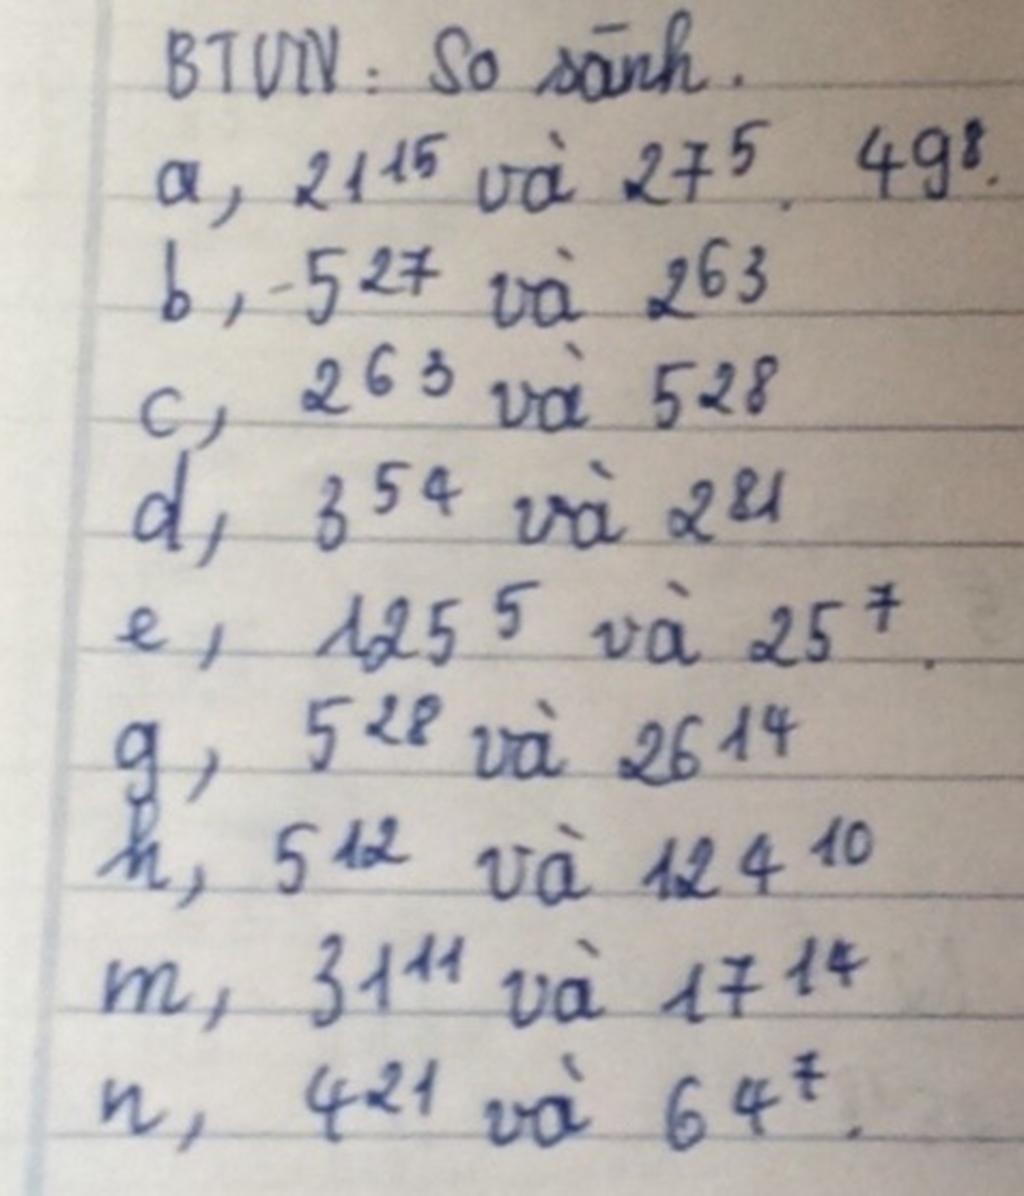 BTVN: So sánh.
a, 21¹⁵ và 27⁵. 49⁸.
b, -5²⁷ và 2⁶³
c, 2⁶³ và 5²⁸
d, 3⁵⁴ và 2⁸¹
e, 125⁵ và 25⁷.
g, 5²⁸ và 26¹⁴
h, 5¹² và 124¹⁰
m, 31¹¹ và 17¹⁴
n, 4²¹ và 64⁷.